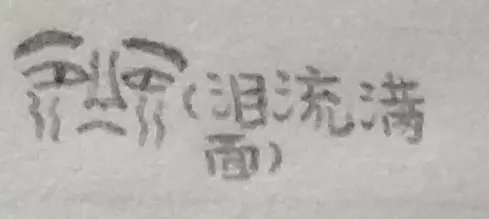 (泪流满
面)